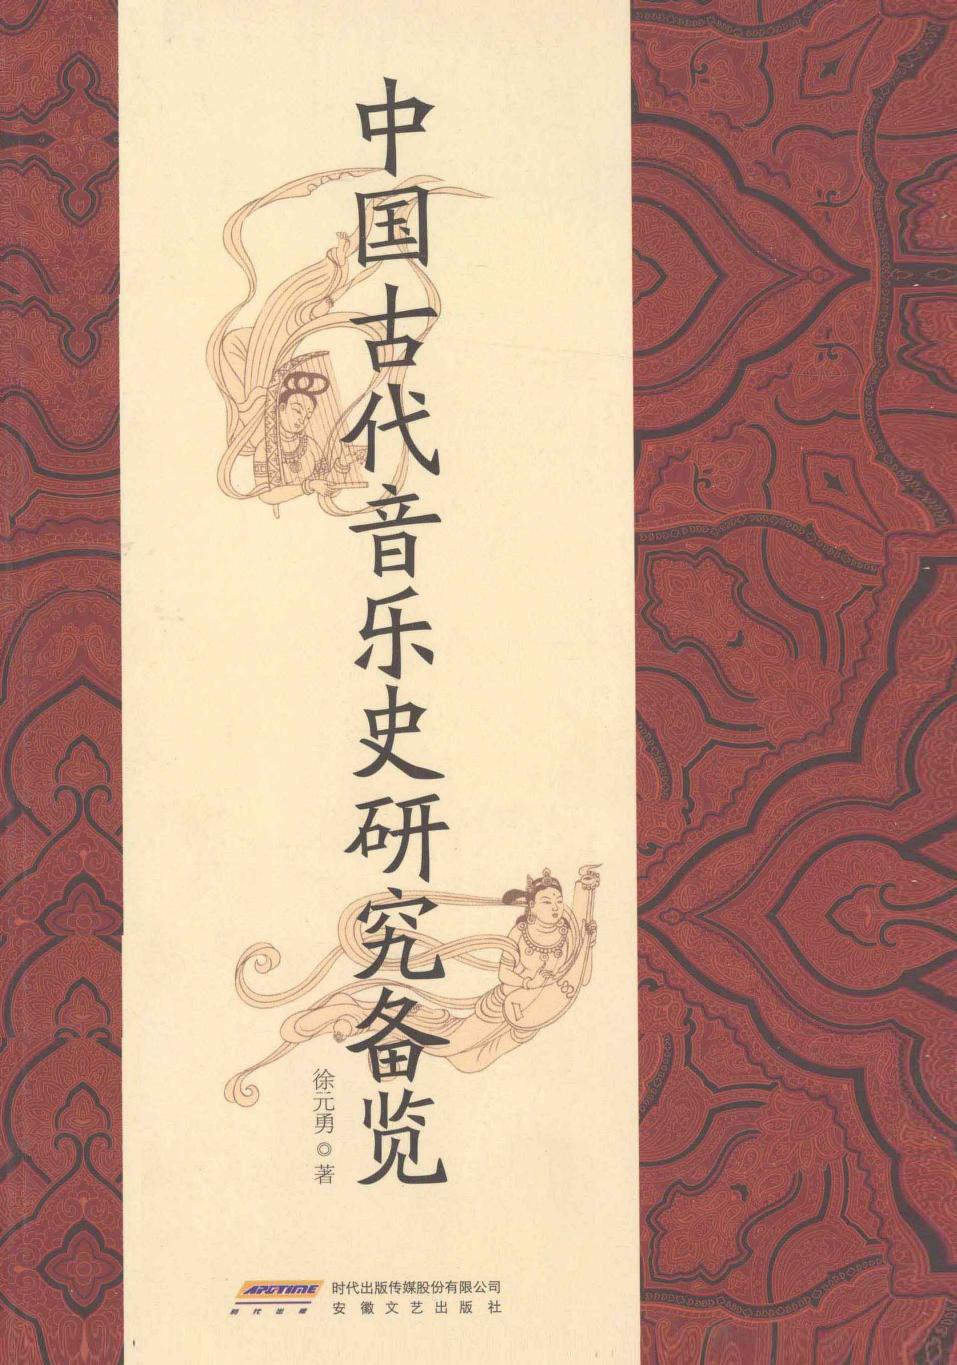 中国古代音乐史研究备览
徐元勇◎著
APGTIME
时代出版
时代出版传媒股份有限公司
安徽文艺出版社